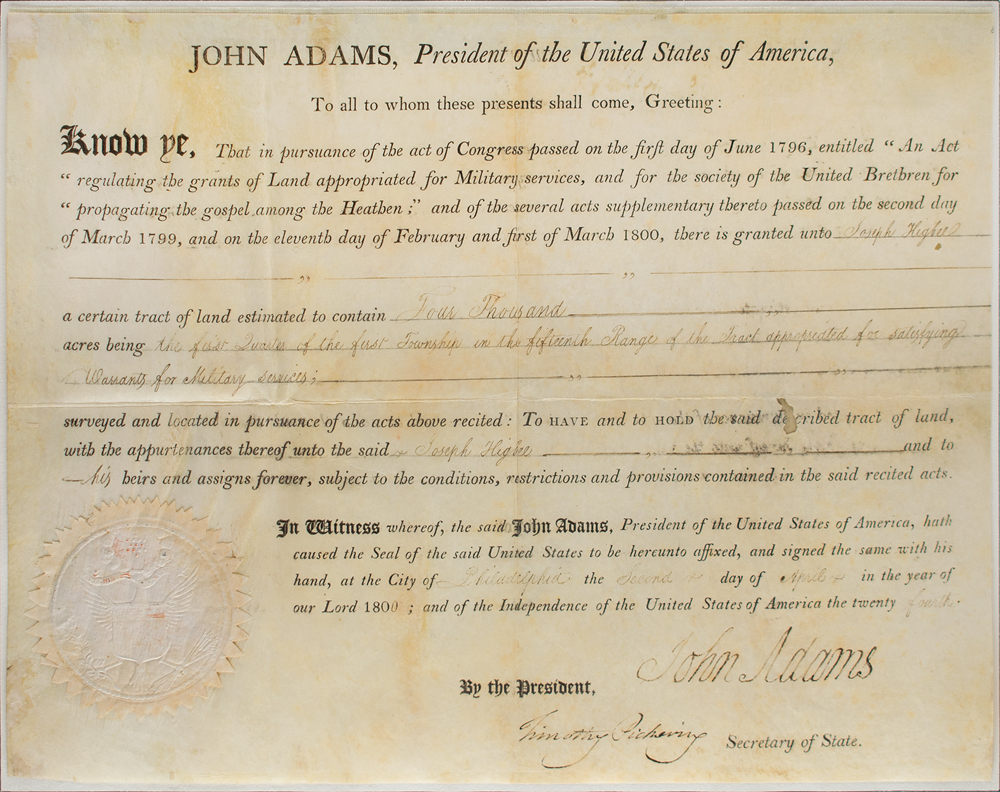 JOHN ADAMS, President of the United States of America,
To all to whom these presents shall come, Greeting:
Know ye, That in pursuance of the act of Congress passed on the first day of June 1796, entitled “An Act
“ regulating the grants of Land appropriated for Military services, and for the society of the United Brethren for
“ propagating the gospel among the Heathen;” and of the several acts supplementary thereto passed on the second day
of March 1799, and on the eleventh day of February and first of March 1800, there is granted unto Joseph Higbee
a certain tract of land estimated to contain Four Thousand
acres being the first Quarter of the first Township in the fifteenth Range of the Tract appropriated for satisfying
Warrants for Military services;
surveyed and located in pursuance of the acts above recited: To HAVE and to HOLD the said described tract of land,
with the appurtenances thereof unto the said Joseph Higbee and to
his heirs and assigns forever, subject to the conditions, restrictions and provisions contained in the said recited acts.
In Witness whereof, the said John Adams, President of the United States of America, hath
caused the Seal of the said United States to be hereunto affixed, and signed the same with his
hand, at the City of Philadelphia the Second day of April in the year of
our Lord 1800; and of the Independence of the United States of America the twenty fourth.
John Adams
By the President,
Timothy Pickering Secretary of State.